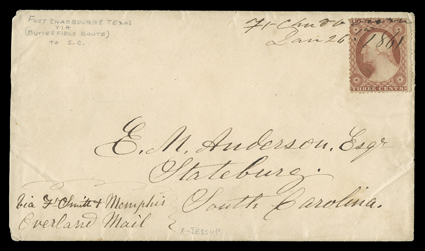 FORT CHADBOURNE TEXAS
VIA
(BUTTERFIELD ROUTE)
TO S.C.
Ft Chadbourne
Jan 26 1861
THREE CENTS
E. N. Anderson, Esqr
Stateburg.
South Carolina.
via Ft Smith & Memphis
Overland Mail
X-JESSUP